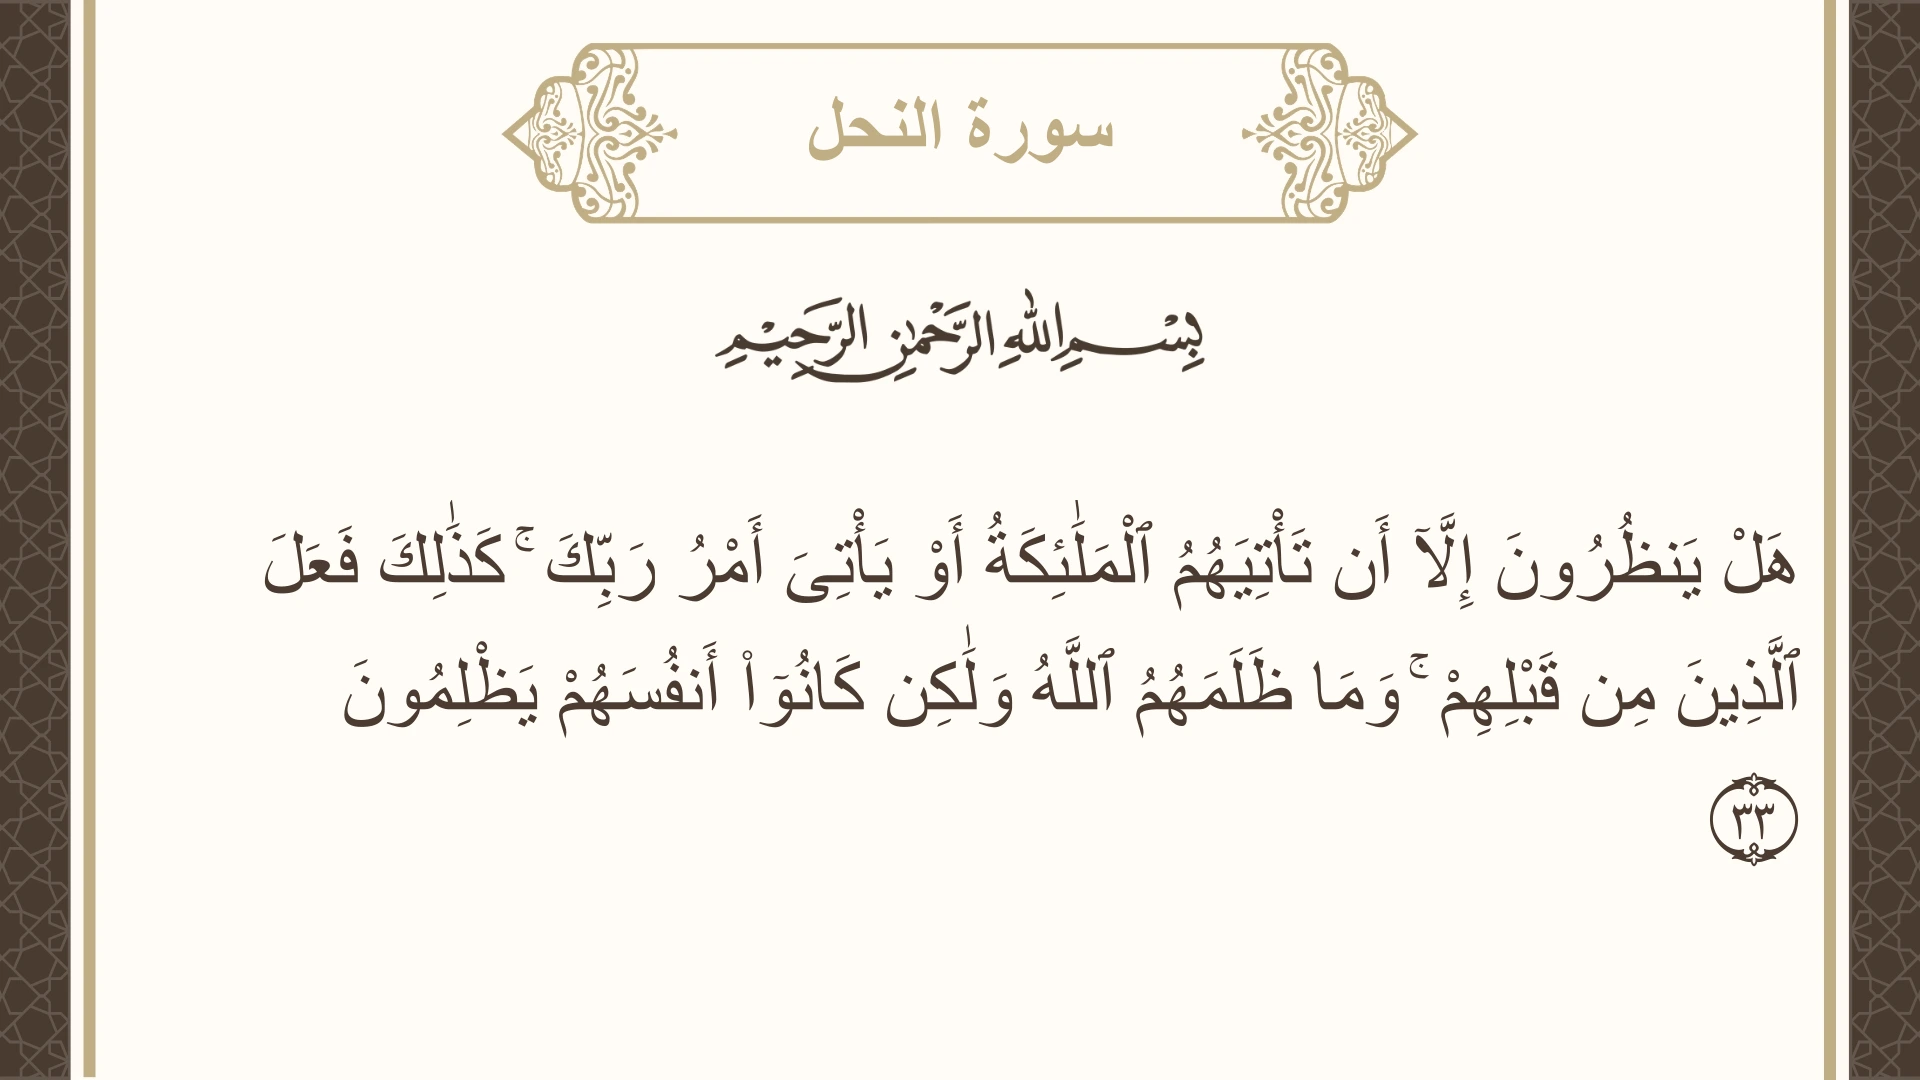 سورة النحل
بِسْمِ اللهِ الرَّحْمٰنِ الرَّحِيْمِ
هَلْ يَنظُرُونَ إِلَّآ أَن تَأْتِيَهُمُ ٱلْمَلَٰٓئِكَةُ أَوْ يَأْتِىَ أَمْرُ رَبِّكَ ۚ كَذَٰلِكَ فَعَلَ
ٱلَّذِينَ مِن قَبْلِهِمْ ۚ وَمَا ظَلَمَهُمُ ٱللَّهُ وَلَٰكِن كَانُوٓا۟ أَنفُسَهُمْ يَظْلِمُونَ
٣٣